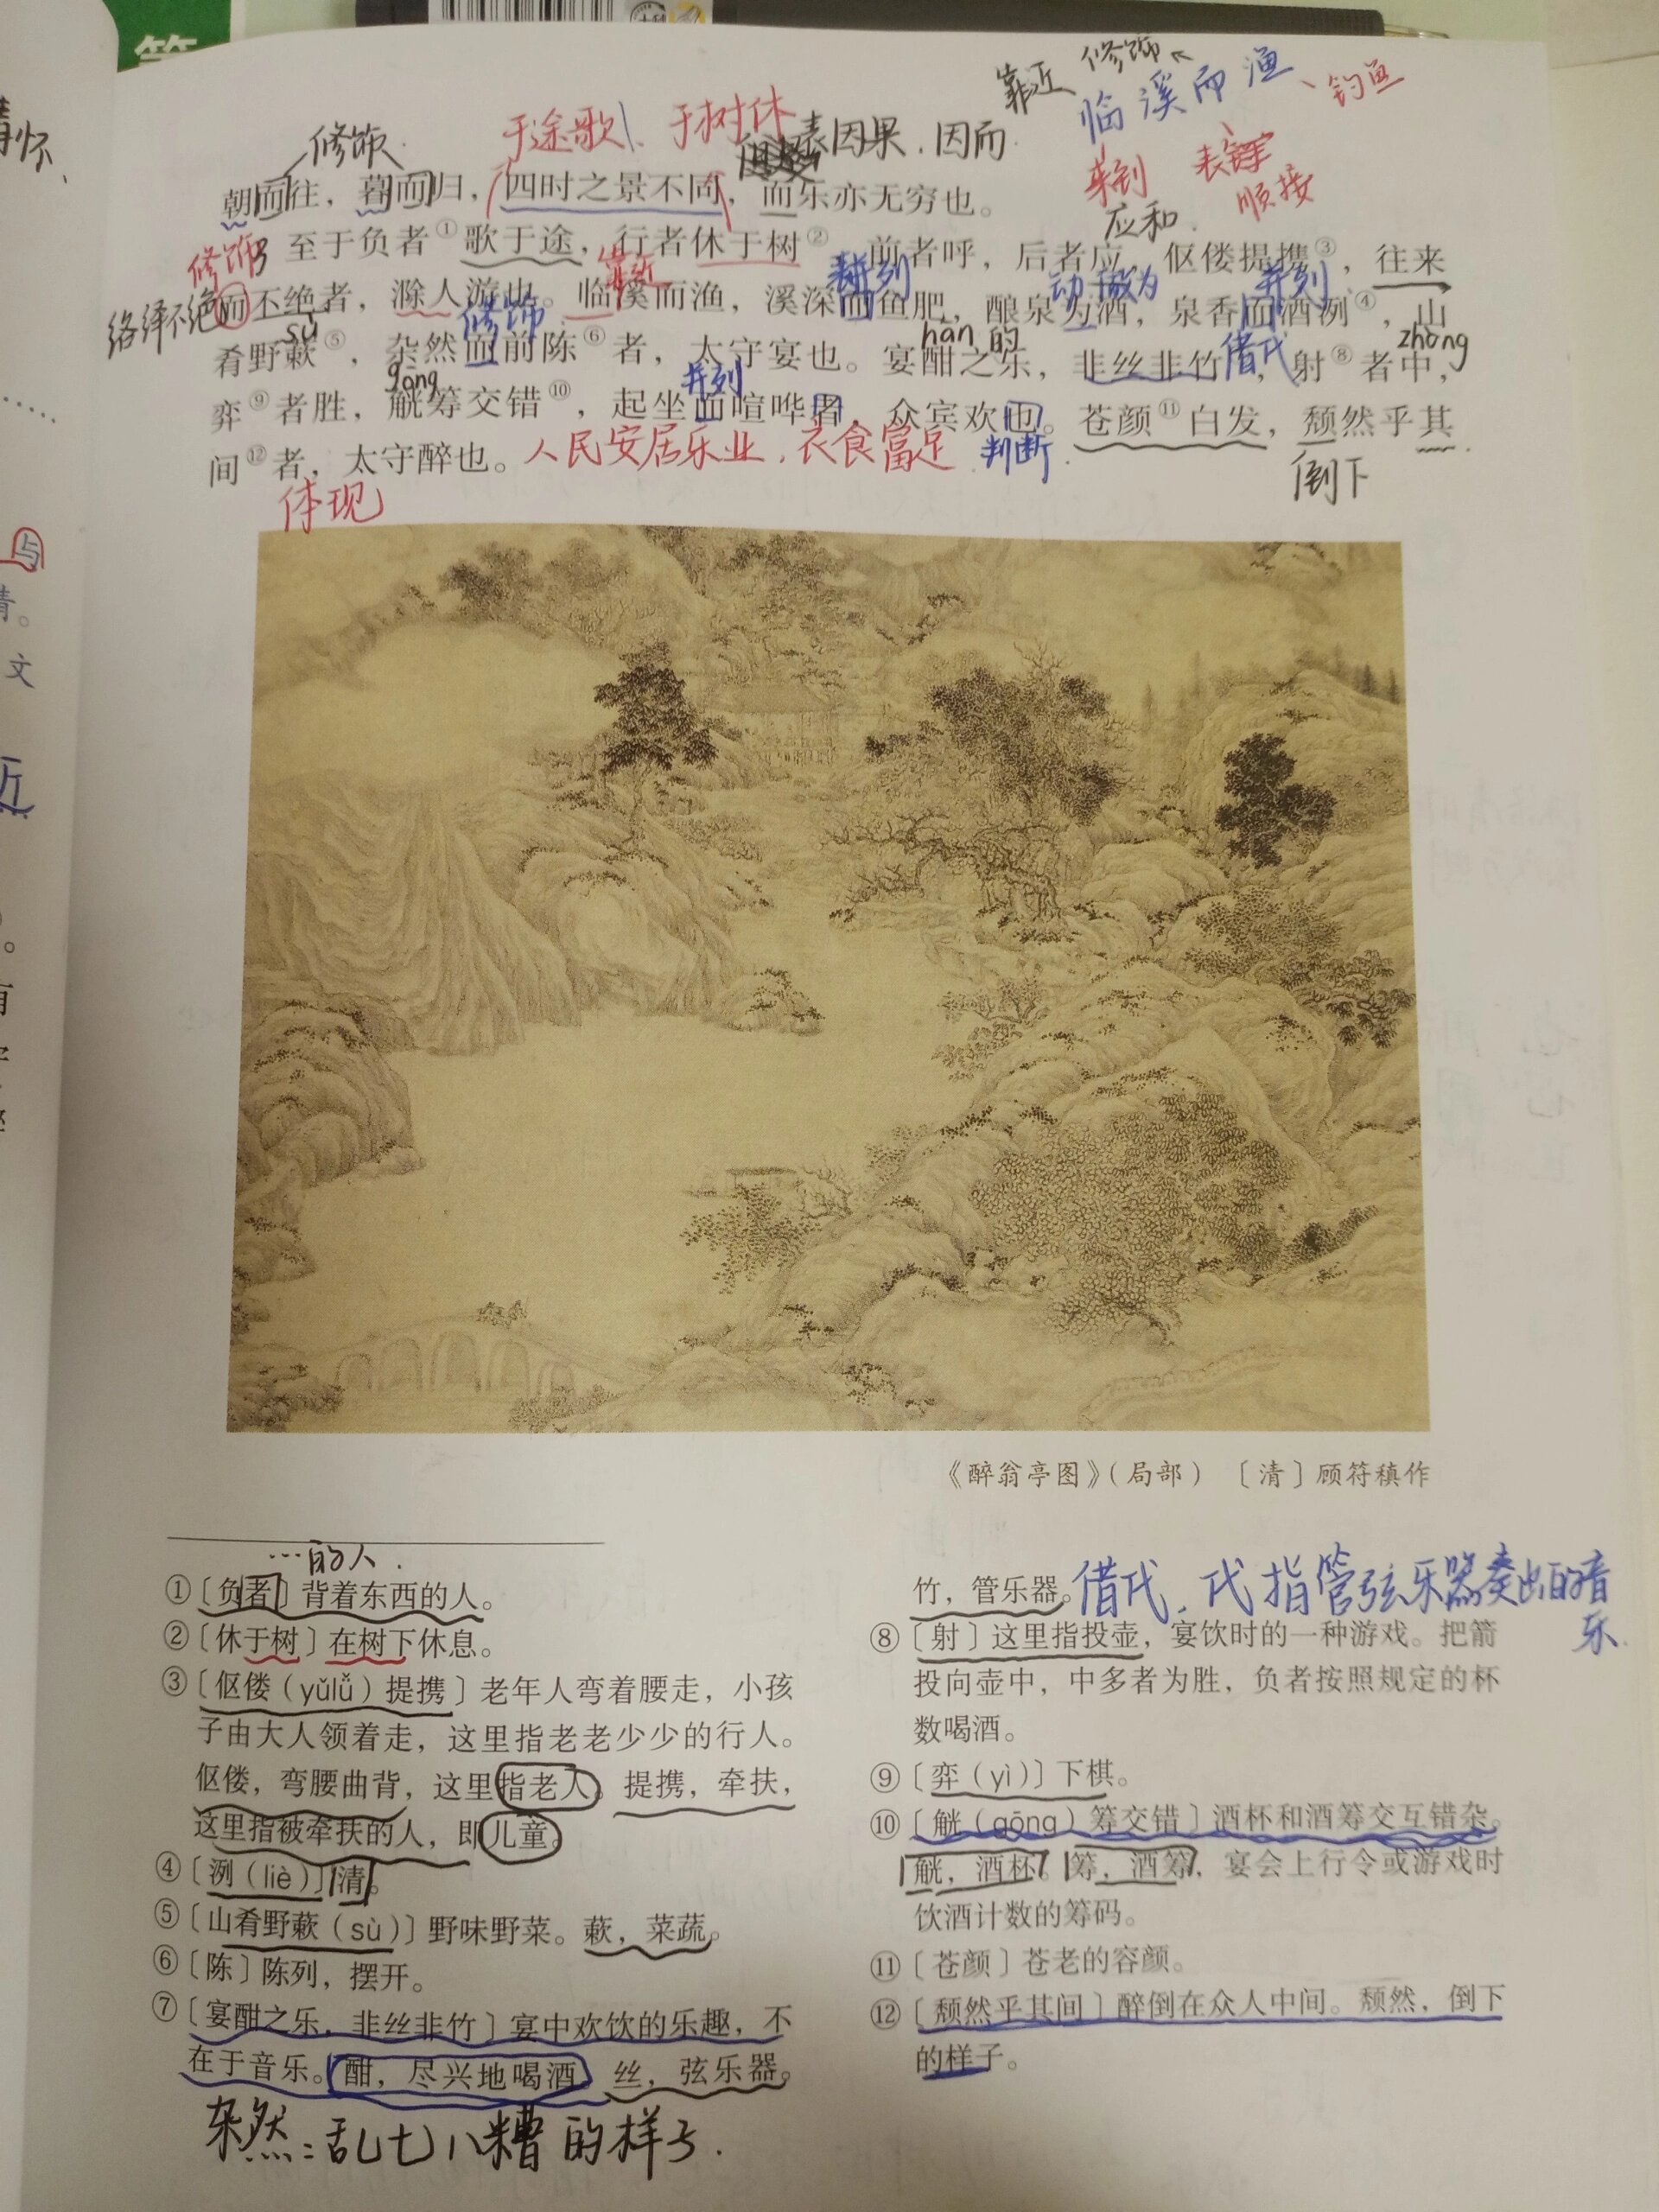 修饰
靠近
临溪而渔
钓鱼
于途歌
于树休
表因果,因而
修饰
来到
顺接
朝而往，暮而归，四时之景不同，而乐亦无穷也。
应和
修饰
至于负者①歌于途，行者休于树②，前者呼，后者应，伛偻提携③，往来
靠近
并列
动 做为
并列
络绎不绝
而不绝者，滁人游也。临溪而渔，溪深而鱼肥，酿泉为酒，泉香而酒洌④，山
sù
修饰
hān 的
借代
zhòng
肴野蔌⑤，杂然而前陈⑥者，太守宴也。宴酣之乐，非丝非竹⑦，射⑧者中，
gōng
并列
弈⑨者胜，觥筹交错⑩，起坐而喧哗者，众宾欢也。苍颜⑪白发，颓然乎其
间⑫者，太守醉也。
人民安居乐业,衣食富足
判断
倒下
体现
《醉翁亭图》（局部） 〔清〕顾符稹作
…的人
①〔负者〕背着东西的人。
②〔休于树〕在树下休息。
③〔伛偻（yǔlǚ）提携〕老年人弯着腰走，小孩
子由大人领着走，这里指老老少少的行人。
伛偻，弯腰曲背，这里指老人。提携，牵扶，
这里指被牵扶的人，即儿童。
④〔洌（liè）〕清。
⑤〔山肴野蔌（sù）〕野味野菜。蔌，菜蔬。
⑥〔陈〕陈列，摆开。
⑦〔宴酣之乐，非丝非竹〕宴中欢饮的乐趣，不
在于音乐。酣，尽兴地喝酒。丝，弦乐器。
杂然:乱七八糟的样子.
竹，管乐器。
借代,代指管弦乐器奏出的音
乐.
⑧〔射〕这里指投壶，宴饮时的一种游戏。把箭
投向壶中，中多者为胜，负者按照规定的杯
数喝酒。
⑨〔弈（yì）〕下棋。
⑩〔觥（gōng）筹交错〕酒杯和酒筹交互错杂。
觥，酒杯。筹，酒筹，宴会上行令或游戏时
饮酒计数的筹码。
⑪〔苍颜〕苍老的容颜。
⑫〔颓然乎其间〕醉倒在众人中间。颓然，倒下
的样子。